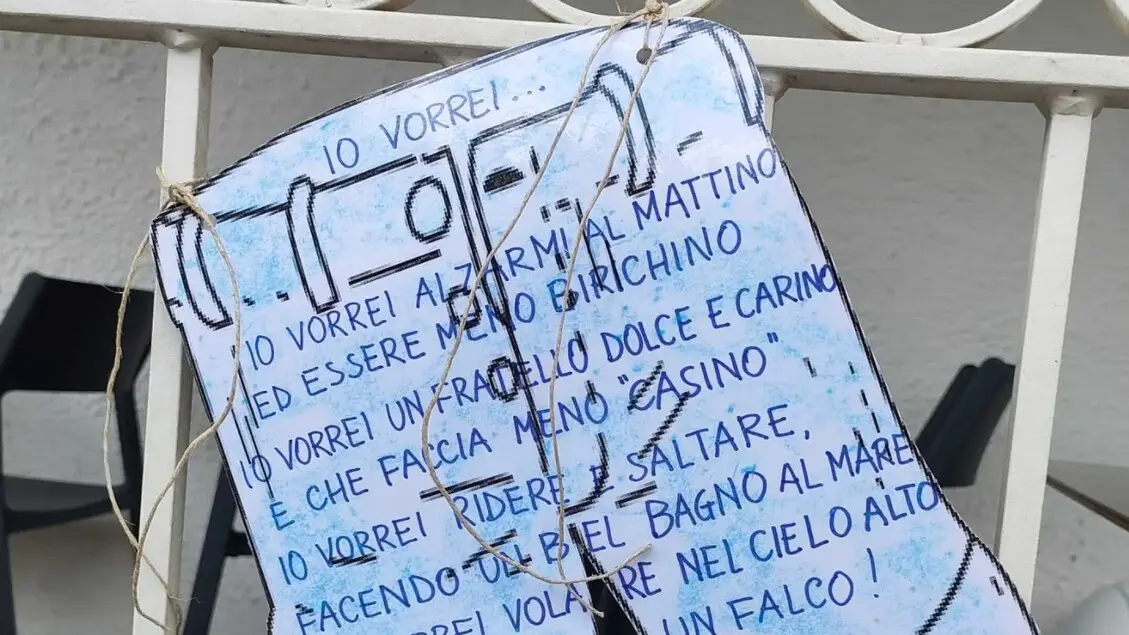 IO VORREI...
IO VORREI ALZARMI AL MATTINO
ED ESSERE MENO BIRICHINO
IO VORREI UN FRATELLO DOLCE E CARINO
E CHE FACCIA MENO "CASINO"
IO VORREI RIDERE E SALTARE,
FACENDO UN BEL BAGNO AL MARE
VORREI VOLARE NEL CIELO ALTO
UN FALCO!